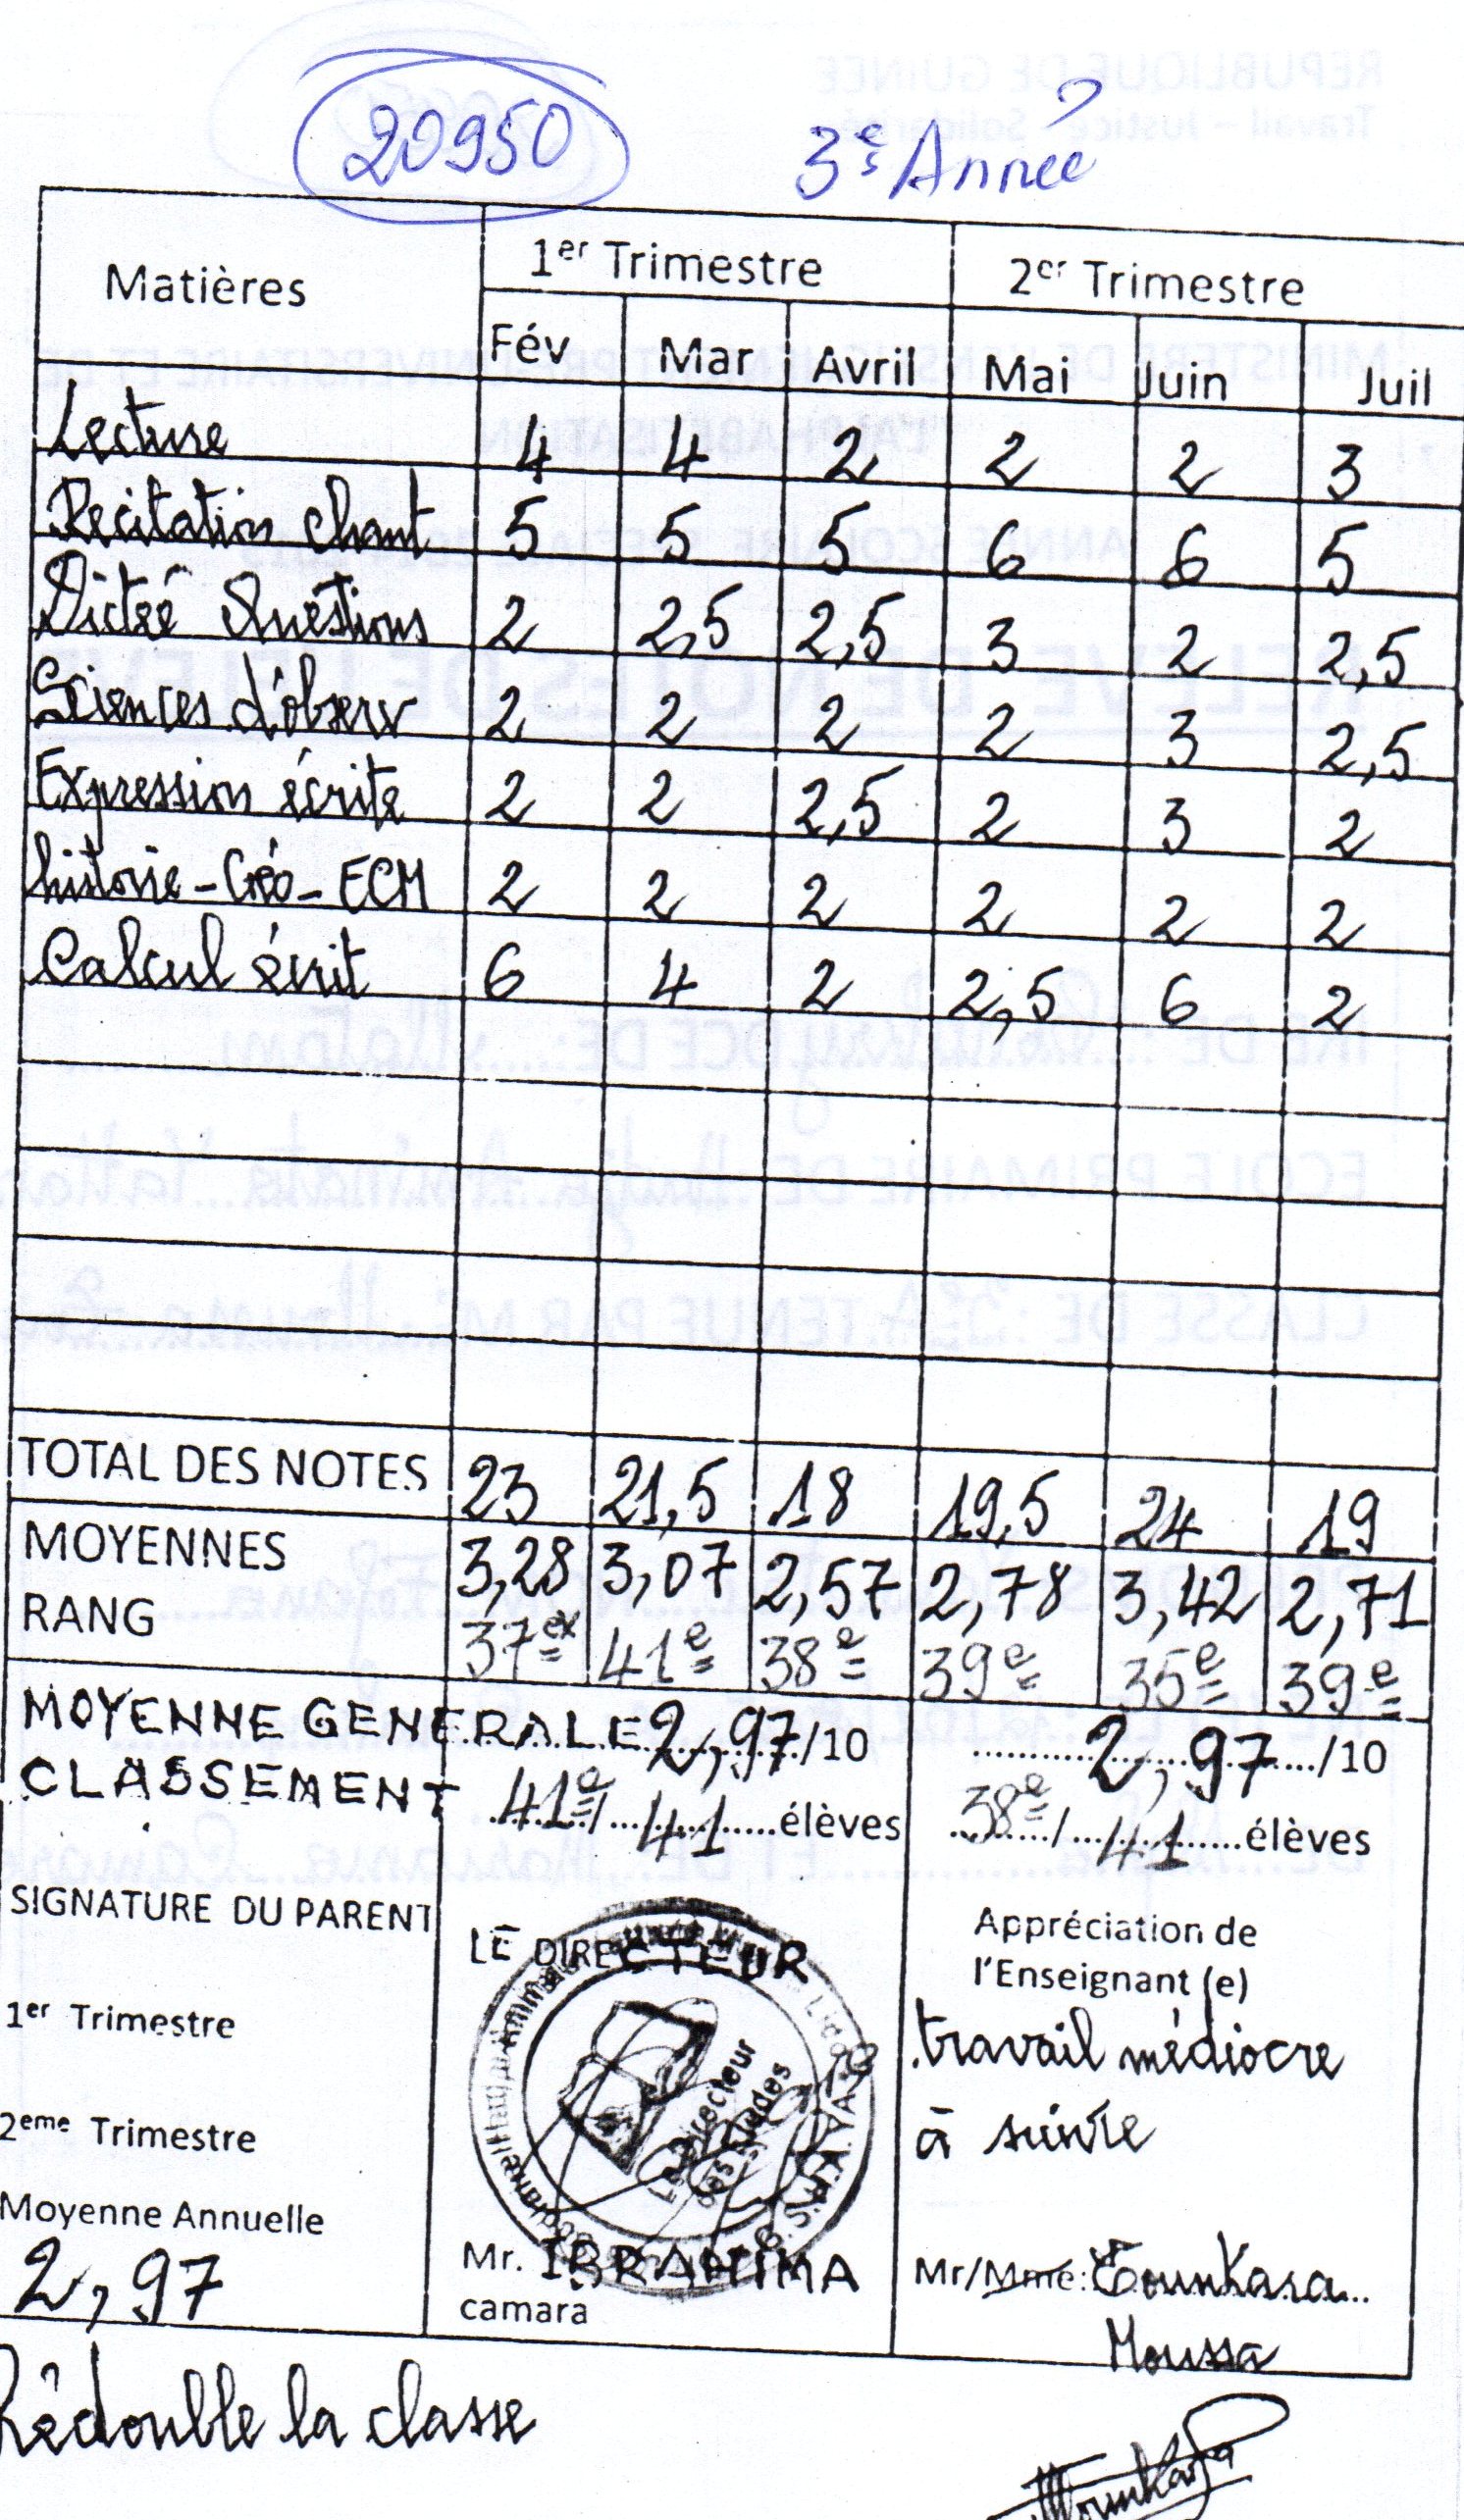 20950
3e Année
Matières 1er Trimestre 2er Trimestre
Fév Mar Avril Mai Juin Juil
Lecture 4 4 2 2 2 3
Recitation chant 5 5 5 6 6 5
Dictée Questions 2 2,5 2,5 3 2 2,5
Sciences d'observ 2 2 2 2 3 2,5
Expression écrite 2 2 2,5 2 3 2
histoire-Géo-ECM 2 2 2 2 2 2
Calcul écrit 6 4 2 2,5 6 2
TOTAL DES NOTES 23 21,5 18 19,5 24 19
MOYENNES 3,28 3,07 2,57 2,78 3,42 2,71
RANG 37ex 41e 38e 39e 35e 39e
MOYENNE GENERALE 2,97/10 2,97/10
CLASSEMENT 41e/41 élèves 38e/41 élèves
SIGNATURE DU PARENT
1er Trimestre
2eme Trimestre
Moyenne Annuelle
2,97
LE DIRECTEUR
Le Directeur
des Etudes
Mr. IBRAHIMA
camara
Appréciation de
l'Enseignant (e)
travail médiocre
à suivre
Mr/Mme: Tounkara
Moussa
Rédouble la classe